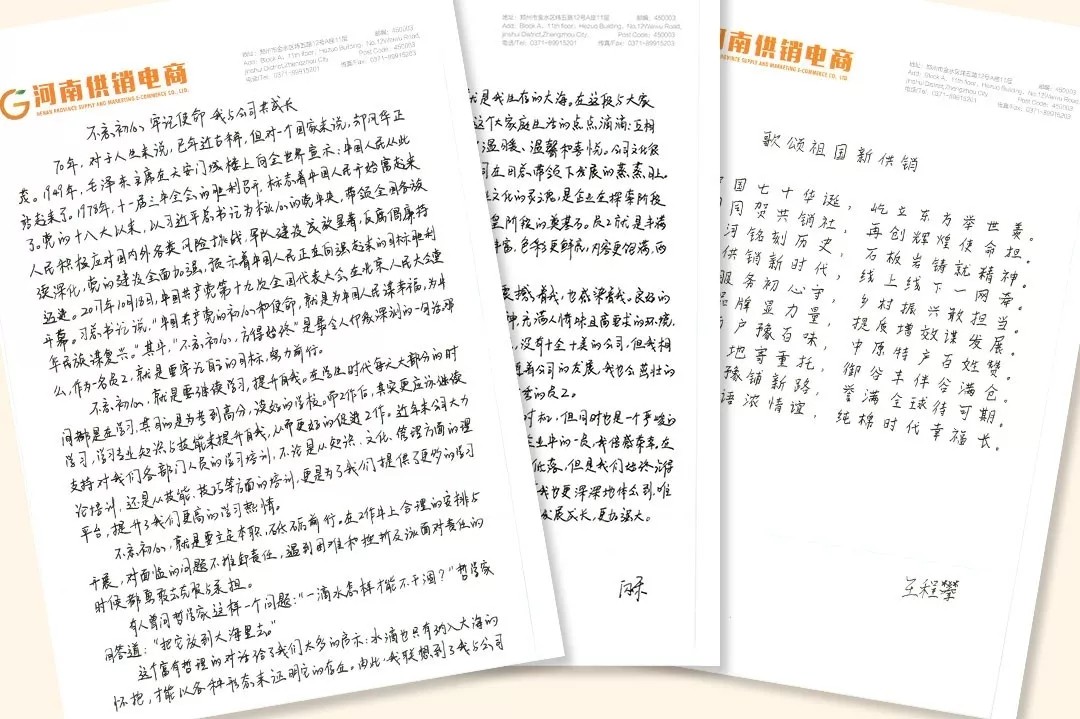 河南供销电商
HENAN PROVINCE SUPPLY AND MARKETING E-COMMERCE CO., LTD.
地址：郑州市金水区纬五路12号A座11层 邮编：450003
Add: Block A, 11th floor, Hezuo Building, No.12Weiwu Road,
jinshui District,Zhengzhou City. Post Code: 450003
电话/Tel: 0371-89915201 传真/Fax: 0371-89915201
不忘初心 牢记使命 我与公司共成长
70年，对于人生来说，已年近古稀，但对一个国家来说，却风华正
茂。1949年，毛泽东主席在天安门城楼上向全世界宣示：中国人民从此
站起来了。1978年，十一届三中全会的胜利召开，标志着中国人民开始富起来
了。党的十八大以来，以习近平总书记为核心的党中央，带领全国各族
人民积极应对国内外各类风险挑战，军队建设成效显著，反腐倡廉持
续深化，党的建设全面加强，预示着中国人民正在向强起来的目标胜利
迈进。2017年10月18日，中国共产党第十九次全国代表大会在北京人民大会堂
开幕。习总书记说，“中国共产党的初心和使命，就是为中国人民谋幸福，为中
华民族谋复兴。”其中，“不忘初心，方得始终”是最令人印象深刻的一句话。那
么，作为一名员工，就是要牢记自己的目标，努力前行。
不忘初心，就是要继续学习，提升自我。在学生时代每天大部分的时
间都是在学习，其目的是为考到高分，读好的学校。而工作后，其实更应该继续
学习，学习专业知识与技能来提升自我，从而更好的促进工作。近年来公司大力
支持对我们各部门人员的学习培训，不论是从知识、文化、管理方面的理
论培训，还是从技能、技巧等方面的培训，更是为了我们提供了更多的学习
平台，提升了我们更高的学习热情。
不忘初心，就是要立足本职，砥砺前行。在工作中上合理的安排与
开展，对面临的问题不推卸责任，遇到困难和挫折及该面对责任的
时候都勇敢去克服与承担。
有人曾问哲学家这样一个问题：“一滴水怎样才能不干涸？”哲学家
回答道：“把它放到大海里去。”
这个富有哲理的对话给了我们太多的启示：水滴也只有纳入大海的
怀抱，才能以各种形态来证明它的存在。由此，我联想到了我与公司
地址：郑州市金水区纬五路12号A座11层 邮编：450003
Add: Block A, 11th floor, Hezuo Building, No.12Weiwu Road,
jinshui District,Zhengzhou City. Post Code: 450003
电话/Tel: 0371-89915201 传真/Fax: 0371-89915201
就是我生存的大海。在这段与大家
这个大家庭生活的点点滴滴：互相
温暖、温馨和喜悦。公司文化很
司在田总带领下发展的蒸蒸日上。
文化的灵魂，是企业在探索阶段
阶段的奠基石。员工就是丰满
丰富，色彩更鲜亮，内容更饱满，而
撼着我，也感染着我。良好的
神，充满人情味且高要求的环境，
，没有十全十美的公司，但我相
着公司的发展，我也会茁壮的
的员工。
时松，但同时也是一个严峻的
企业中的一员，我倍感荣幸。在
低落，但是我们始终记得
我也更深深地体会到，唯
发展成长，更加强大。
河南供销电商
PROVINCE SUPPLY AND MARKETING E-COMMERCE CO., LTD.
地址：郑州市金水区纬五路12号A座11层 邮编：450003
Add: Block A, 11th floor, Hezuo Building, No.12Weiwu Road,
jinshui District,Zhengzhou City. Post Code: 450003
电话/Tel: 0371-89915201 传真/Fax: 0371-89915201
歌颂祖国新供销
国七十华诞，屹立东方举世羡。
同贺共销社，再创辉煌使命担。
河铭刻历史，石板岩铸就精神。
供销新时代，线上线下一网牵。
服务初心守，乡村振兴敢担当。
品牌显力量，提质增效谋发展。
户豫百味，中原特产百姓赞。
地寄重托，御谷丰伴谷满仓。
豫铺新路，誉满全球待可期。
语浓情谊，纯棉时代幸福长。
王程攀